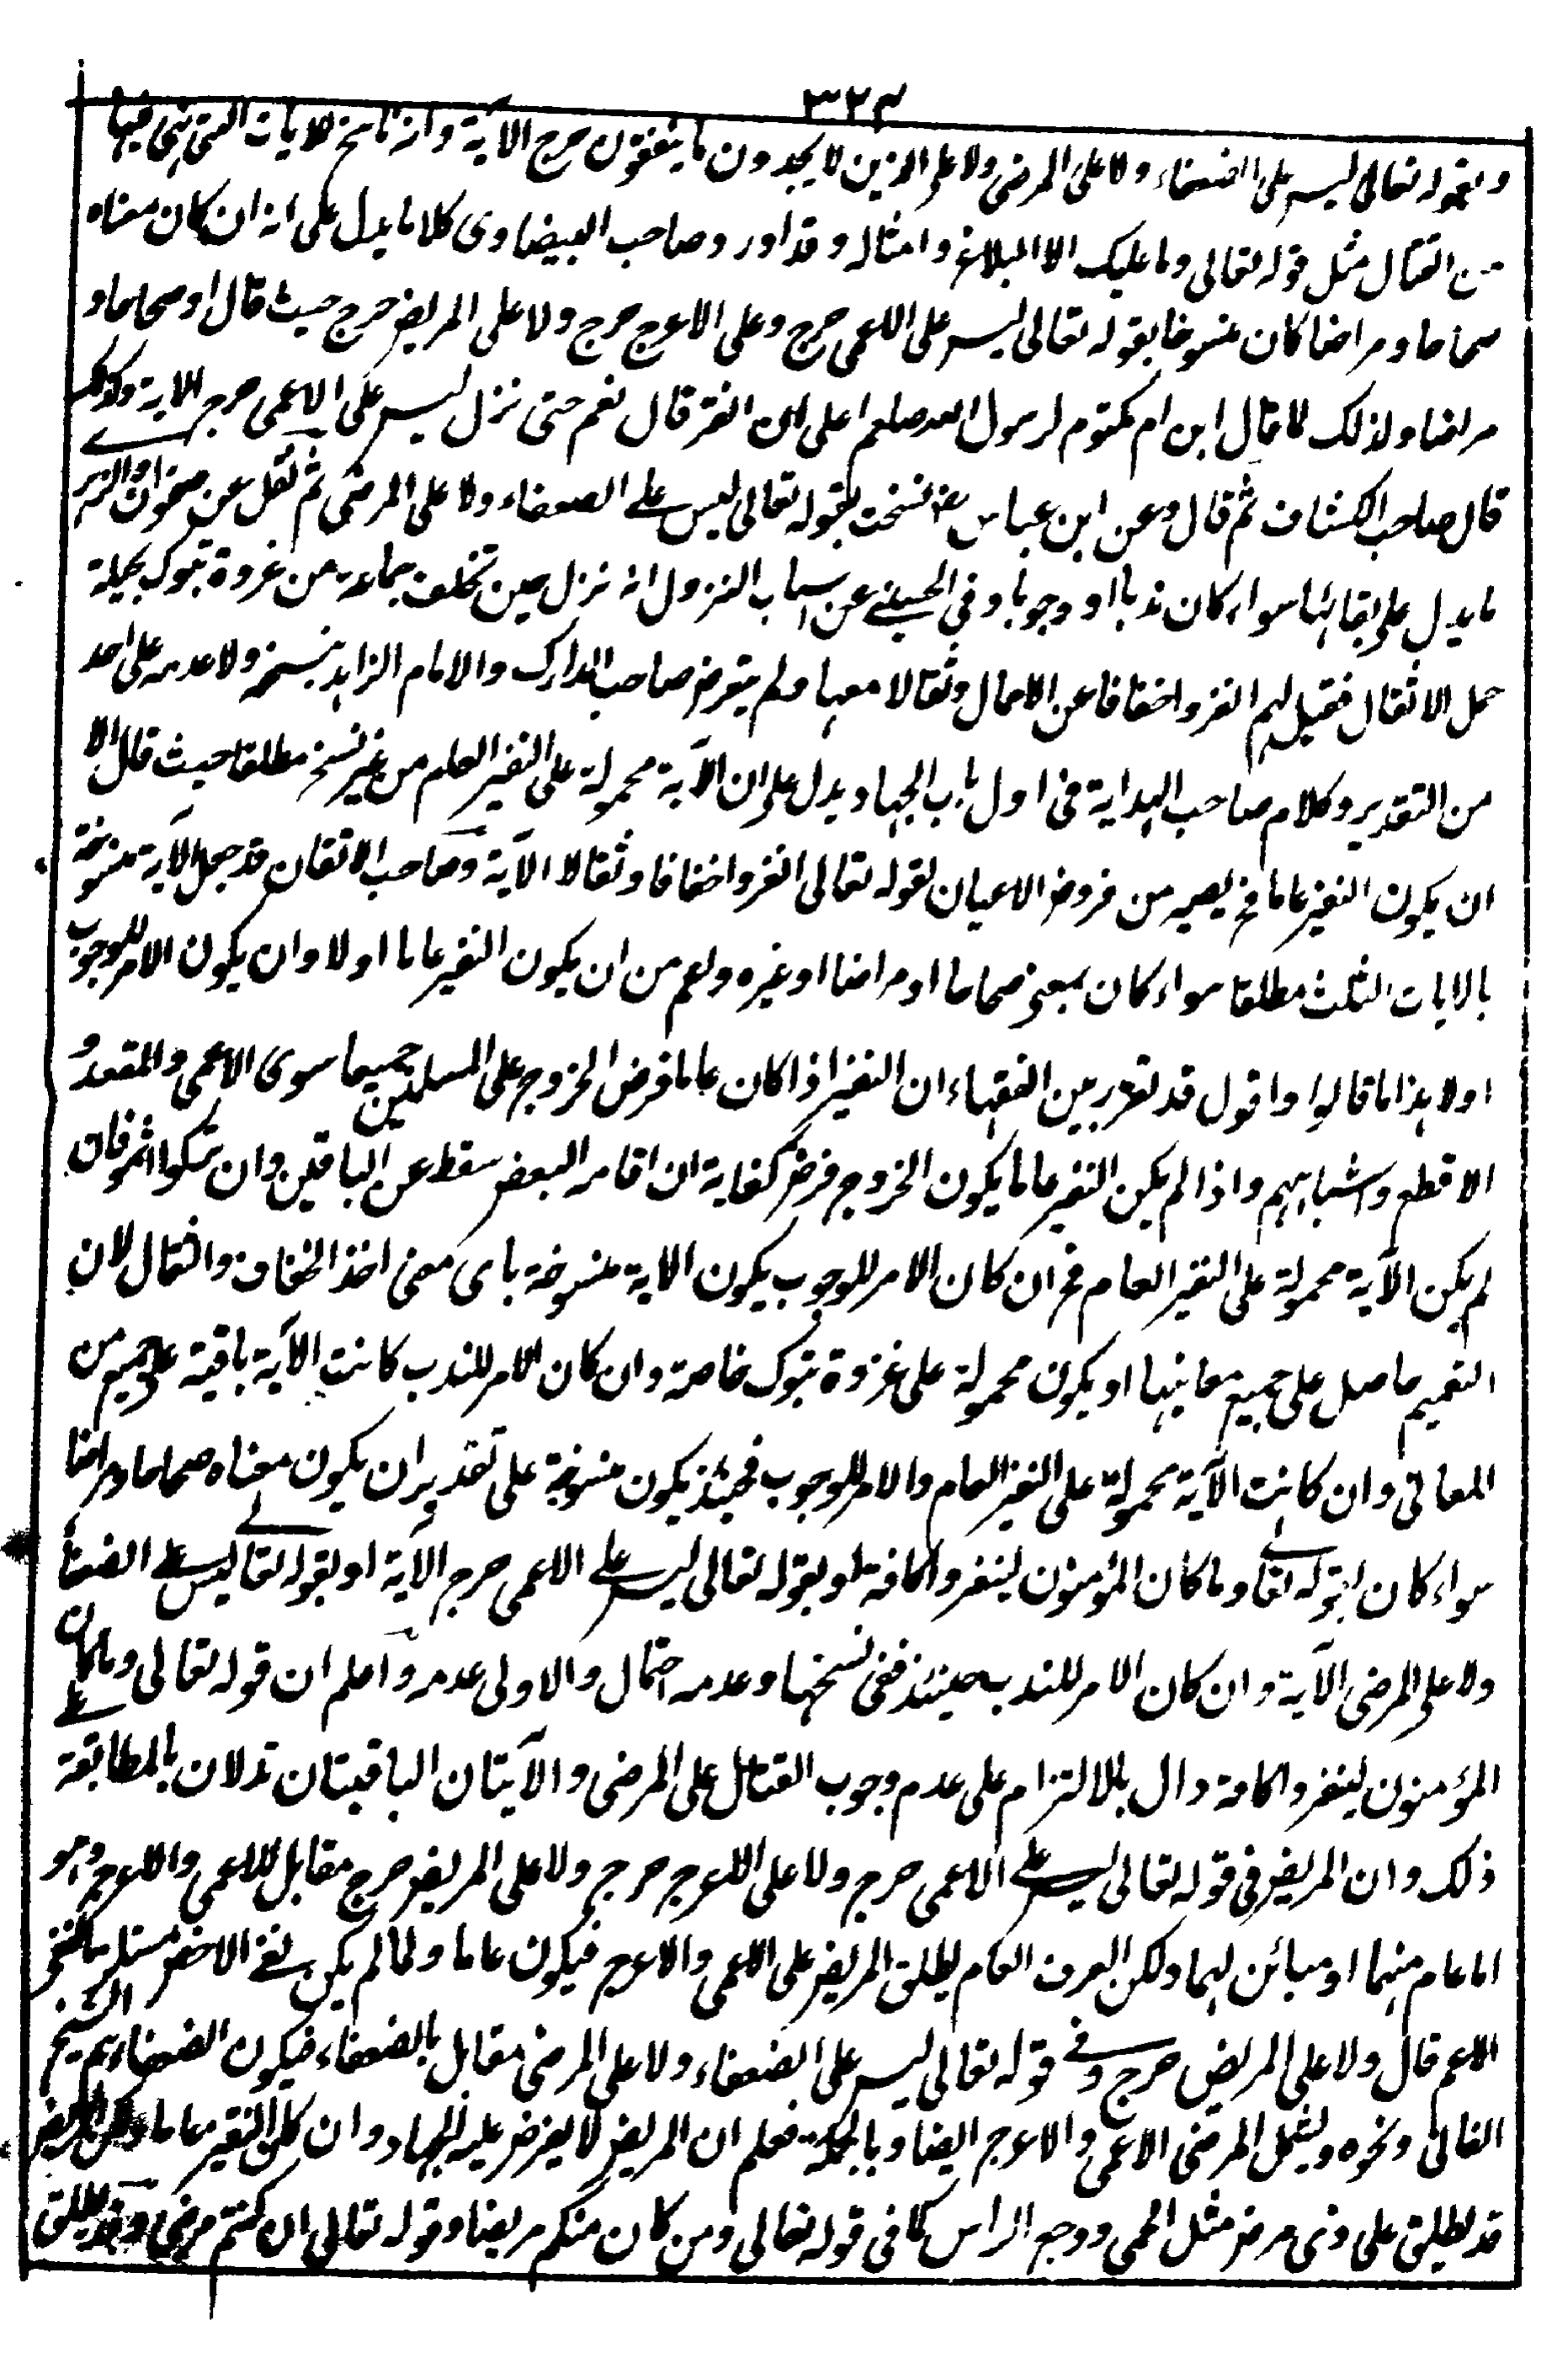 ٣٢٣
وبقوله تعالى ليس على الضعفاء ولا على المرضى ولا على الذين لا يجدون ما ينفقون حرج الآية وانه ناسخ للايات التى نهى فيها
من القتال مثل قوله تعالى وما عليك الا البلاغ وامثاله وقد اورد صاحب البيضاوى كلاما يدل على انه ان كان معناه
صحاحا ومراضا كان منسوخا بقوله تعالى ليس على الاعمى حرج وعلى الاعرج حرج ولا على المريض حرج حيث قال اوصحاحا و
مراضا ولذلك لما قال ابن ام مكتوم لرسول الله صلعم اعلى ان انفر قال نعم حتى نزل ليس على الاعمى حرج الاية وكذلك
قال صاحب الكشاف ثم قال وعن ابن عباس رض نسخت بقوله تعالى ليس على الضعفاء ولا على المرضى ثم نقل عن صفوان والزهرى
ما يدل على بقائها سواء كان ندبا او وجوبا وفى الحسينى عن اسباب النزول انه نزل حين تخلف جماعة من غزوة تبوك بحيلة
حمل الاثقال فقيل لهم انفروا خفافا عن الاحمال وثقالا معها ولم يتعرض صاحب المدارك والامام الزاهد بنسخه ولا عدمه على احد
من التقدير وكلام صاحب الهداية فى اول باب الجهاد يدل على ان الآية محمولة على النفير العام من غير نسخ مطلقا حيث قال الا
ان يكون النفير عاما فح يصير من فروض الاعيان لقوله تعالى انفروا خفافا وثقالا الآية وصاحب الاتقان قد جعل الآية منسوخة
بالايات الثلث مطلقا سواء كان بمعنى صحاحا او مراضا او غيره واعم من ان يكون النفير عاما اولا وان يكون الامر للوجوب
اولا هذا ما قالوا واقول قد تقرر بين الفقهاء ان النفير اذا كان عاما فرض الخروج على المسلمين جميعا سوى الاعمى والمقعد و
الاقطع واشباههم واذا لم يكن النفير عاما يكون الخروج فرض كفاية ان اقامه البعض سقط عن الباقين وان تركوا اثموا فان
لم يكن الآية محمولة على النفير العام فح ان كان الامر للوجوب يكون الاية منسوخة باى معنى اخذ الخفاف والثقال لان
التعميم حاصل على جميع معانيها او يكون محمولة على غزوة تبوك خاصة وان كان الامر للندب كانت الآية باقية على جميع من
المعانى وان كانت الآية محمولة على النفير العام والامر للوجوب فحينئذ يكون منسوخة على تقدير ان يكون معناه صحاحا ومراضا
سواء كان بقوله تعالى وما كان المؤمنون لينفروا كافة او بقوله تعالى ليس على الاعمى حرج الآية او بقوله تعالى ليس على الضعفاء
ولا على المرضى الآية وان كان الامر للندب حينئذ ففى نسخها وعدمه احتمال والاولى عدمه واعلم ان قوله تعالى وما كان
المؤمنون لينفروا كافة دال بالالتزام على عدم وجوب القتال على المرضى والآيتان الباقيتان تدلان بالمطابقة على
ذلك وان المريض فى قوله تعالى ليس على الاعمى حرج ولا على الاعرج حرج ولا على المريض حرج مقابل للاعمى والاعرج وهو
اما عام منهما او مبائن لهما ولكن العرف العام يطلق المريض على الاعمى والاعرج فيكون عاما ولما لم يكن نفى الاخص مستلزما لنفى
الاعم قال ولا على المريض حرج وفى قوله تعالى ليس على الضعفاء ولا على المرضى مقابل بالضعفاء فيكون الضعفاء هم الشيخ
الفانى ونحوه ويشمل المرضى الاعمى والاعرج ايضا وبالجملة فعلم ان المريض لا يفرض عليه الجهاد وان كان النفير عاما ولكن المريض
قد يطلق على ذى مرض مثل الحمى ووجع الراس كما فى قوله تعالى ومن كان منكم مريضا وقوله تعالى ان كنتم مرضى وقد يطلق